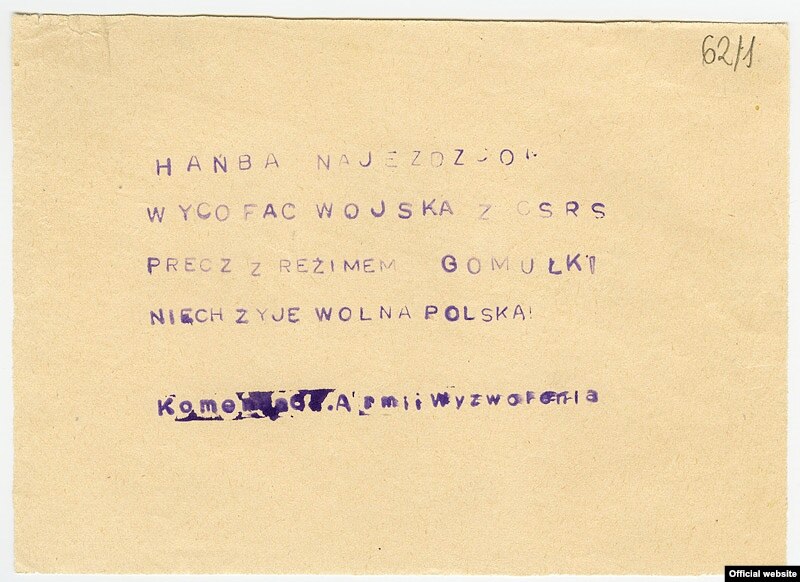 62/1
HAŃBA
WYCOFAC WOJSKA Z CSRS
PRECZ Z REŻIMEM GOMUŁKI
NIECH ŻYJE WOLNA POLSKA!
Armii Wyzwolenia
Official website